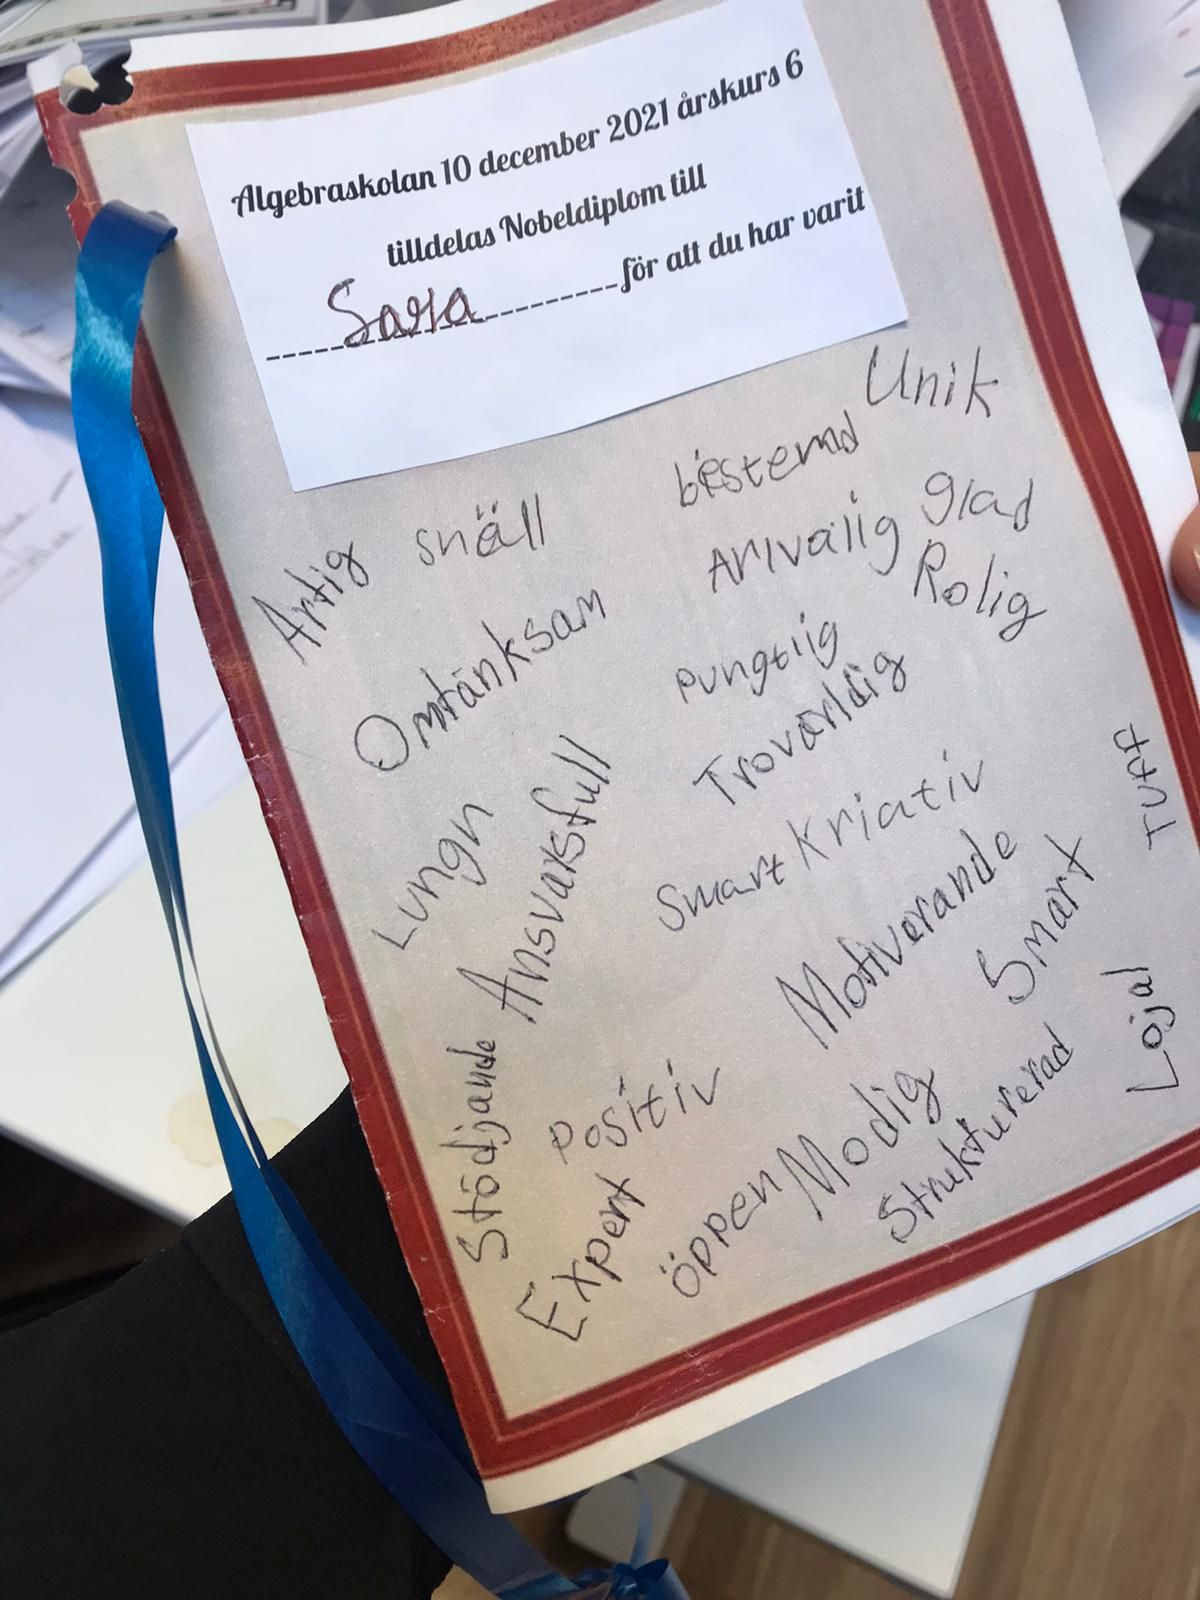 Algebraskolan 10 december 2021 årskurs 6
tilldelas Nobeldiplom till
Sara för att du har varit
Unik
bestemd
Artig snäll
Arlvalig glad
Rolig
Omtänksam
pungtlig
Trovärldig
Lungn
Ansvarsfull
Smart Kriativ
Tuff
Motiverande
Smart
Stödjande
Positiv
Lojal
Expert
öppen Modig
Strukturerad